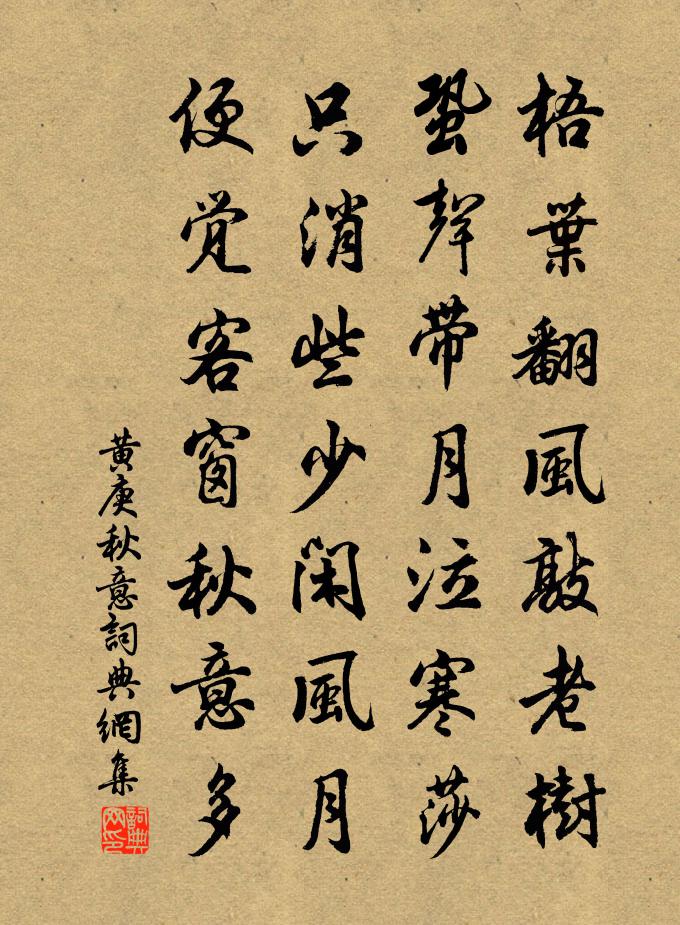 梧葉翻風敲老樹
蛩聲帶月泣寒莎
只消些少闲風月
便覚客窗秋意多
黄庚秋意詞典網集
詞典网印